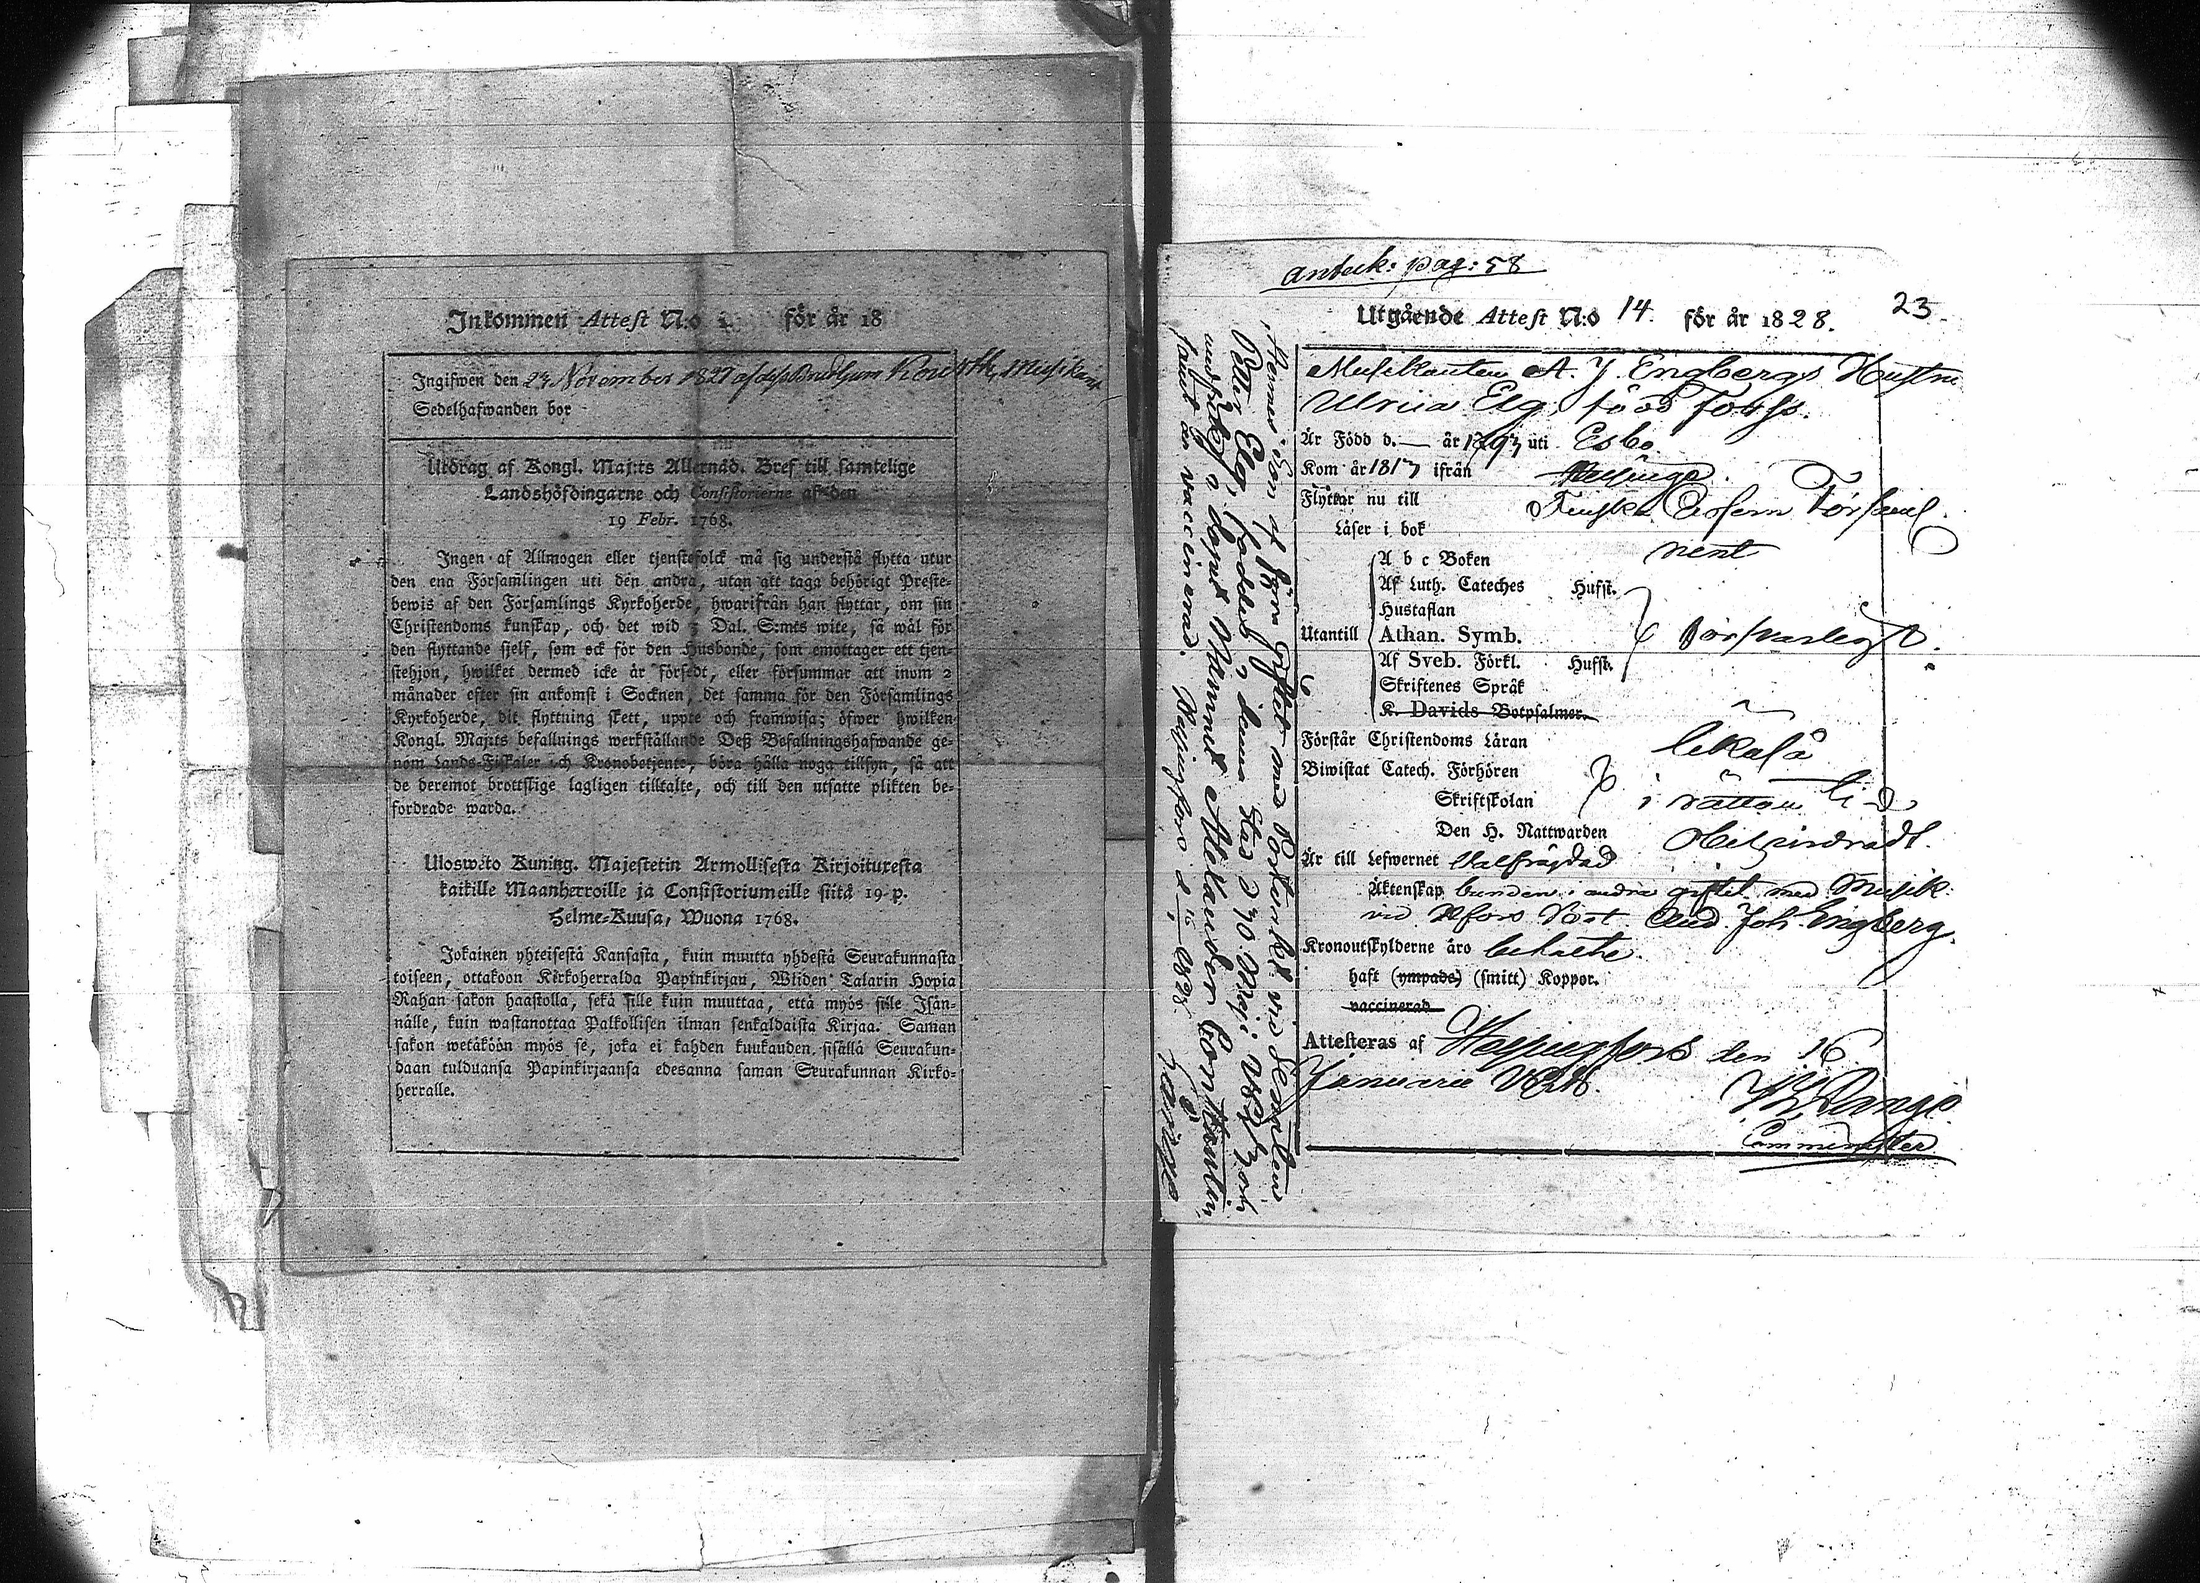 Inkommen Attest N:o för år 18
Ingifwen den 24 November 1827 af dess Brudgum Musikant
Sedelhafwanden bor
Utdrag af Kongl. Maj:ts Allernåd. Bref till samtelige
Landshöfdingarne och Consistorierne af den
19 Febr. 1768.
Ingen af Allmogen eller tjenstefolck må sig understå flytta utur
den ena Församlingen uti den andra, utan att taga behörigt Preste-
bewis af den Församlings Kyrkoherde, hwarifrån han flyttar, om sin
Christendoms kunskap, och det wid 3 Dal. S:mts wite, så wäl för
den flyttande sjelf, som ock för den Husbonde, som emottager ett tjen-
stehjon, hwilket dermed icke är försedt, eller försummar att inom 2
månader efter sin ankomst i Socknen, det samma för den Församlings
Kyrkoherde, dit flyttning skett, uppte och framwisa; öfwer hwilken
Kongl. Maj:ts befallnings werkställande Deß Befallningshafwande ge-
nom Lands-Fiskaler och Kronobetjente, böra hålla noga tillsyn, så att
de deremot brottslige lagligen tilltalte, och till den utsatte plikten be-
fordrade warda.
Uloswéto Kuning. Majestetin Armollisesta Kirjoituxesta
kaikille Maanherroille ja Consistoriumeille siitä 19 p.
Helme-Kuusa, Wuona 1768.
Jokainen yhteisestä Kansasta, kuin muutta yhdestä Seurakunnasta
toiseen, ottakoon Kirkoherralda Papinkirjan, Wliden Talarin Hopia
Rahan sakon haastolla, sekä sille kuin muuttaa, että myös sille Isän-
nälle, kuin wastanottaa Palkollisen ilman senkaldaista Kirjaa. Saman
sakon wetäköön myös se, joka ei kahden kuukauden sisällä Seurakun-
daan tulduansa Papinkirjaansa edesanna saman Seurakunnan Kirko-
herralle.
anteck: pag: 58
23
Utgående Attest N:o 14 för år 1828.
Musikanten A. J. Engbergs Hustru
Ulrica Elg, född Forss.
Är Född d. — år 1793 uti Esbo
Kom år 1817 ifrån Helsinge.
Flyttar nu till Finska Församl.
Läser i bok rent
A b c Boken
Af Luth. Cateches Husst.
Hustaflan
Utantill Athan. Symb. försvarligt.
Af Sveb. Förkl. Husst.
Skriftenes Språk
K. Davids Botpsalmer.
Förstår Christendoms Läran likaså
Biwistat Catech. Förhören
Skriftskolan i rättan tid
Den H. Nattwarden
Är till Lefwernet välfrägdad
Äktenskap bunden i andra giftet med Musik:
vid Hfors And. Joh. Engberg.
Kronoutskylderne äro betalte.
haft (ympade) (smitt) Koppor.
vaccinerad
Attesteras af Helsingfors den 16
Januarii 1828.
Comminister
Petter Elg, i samma Stad d 30 Maji och
Alexander Constantin,
samt är vaccinerad. Helsingfors